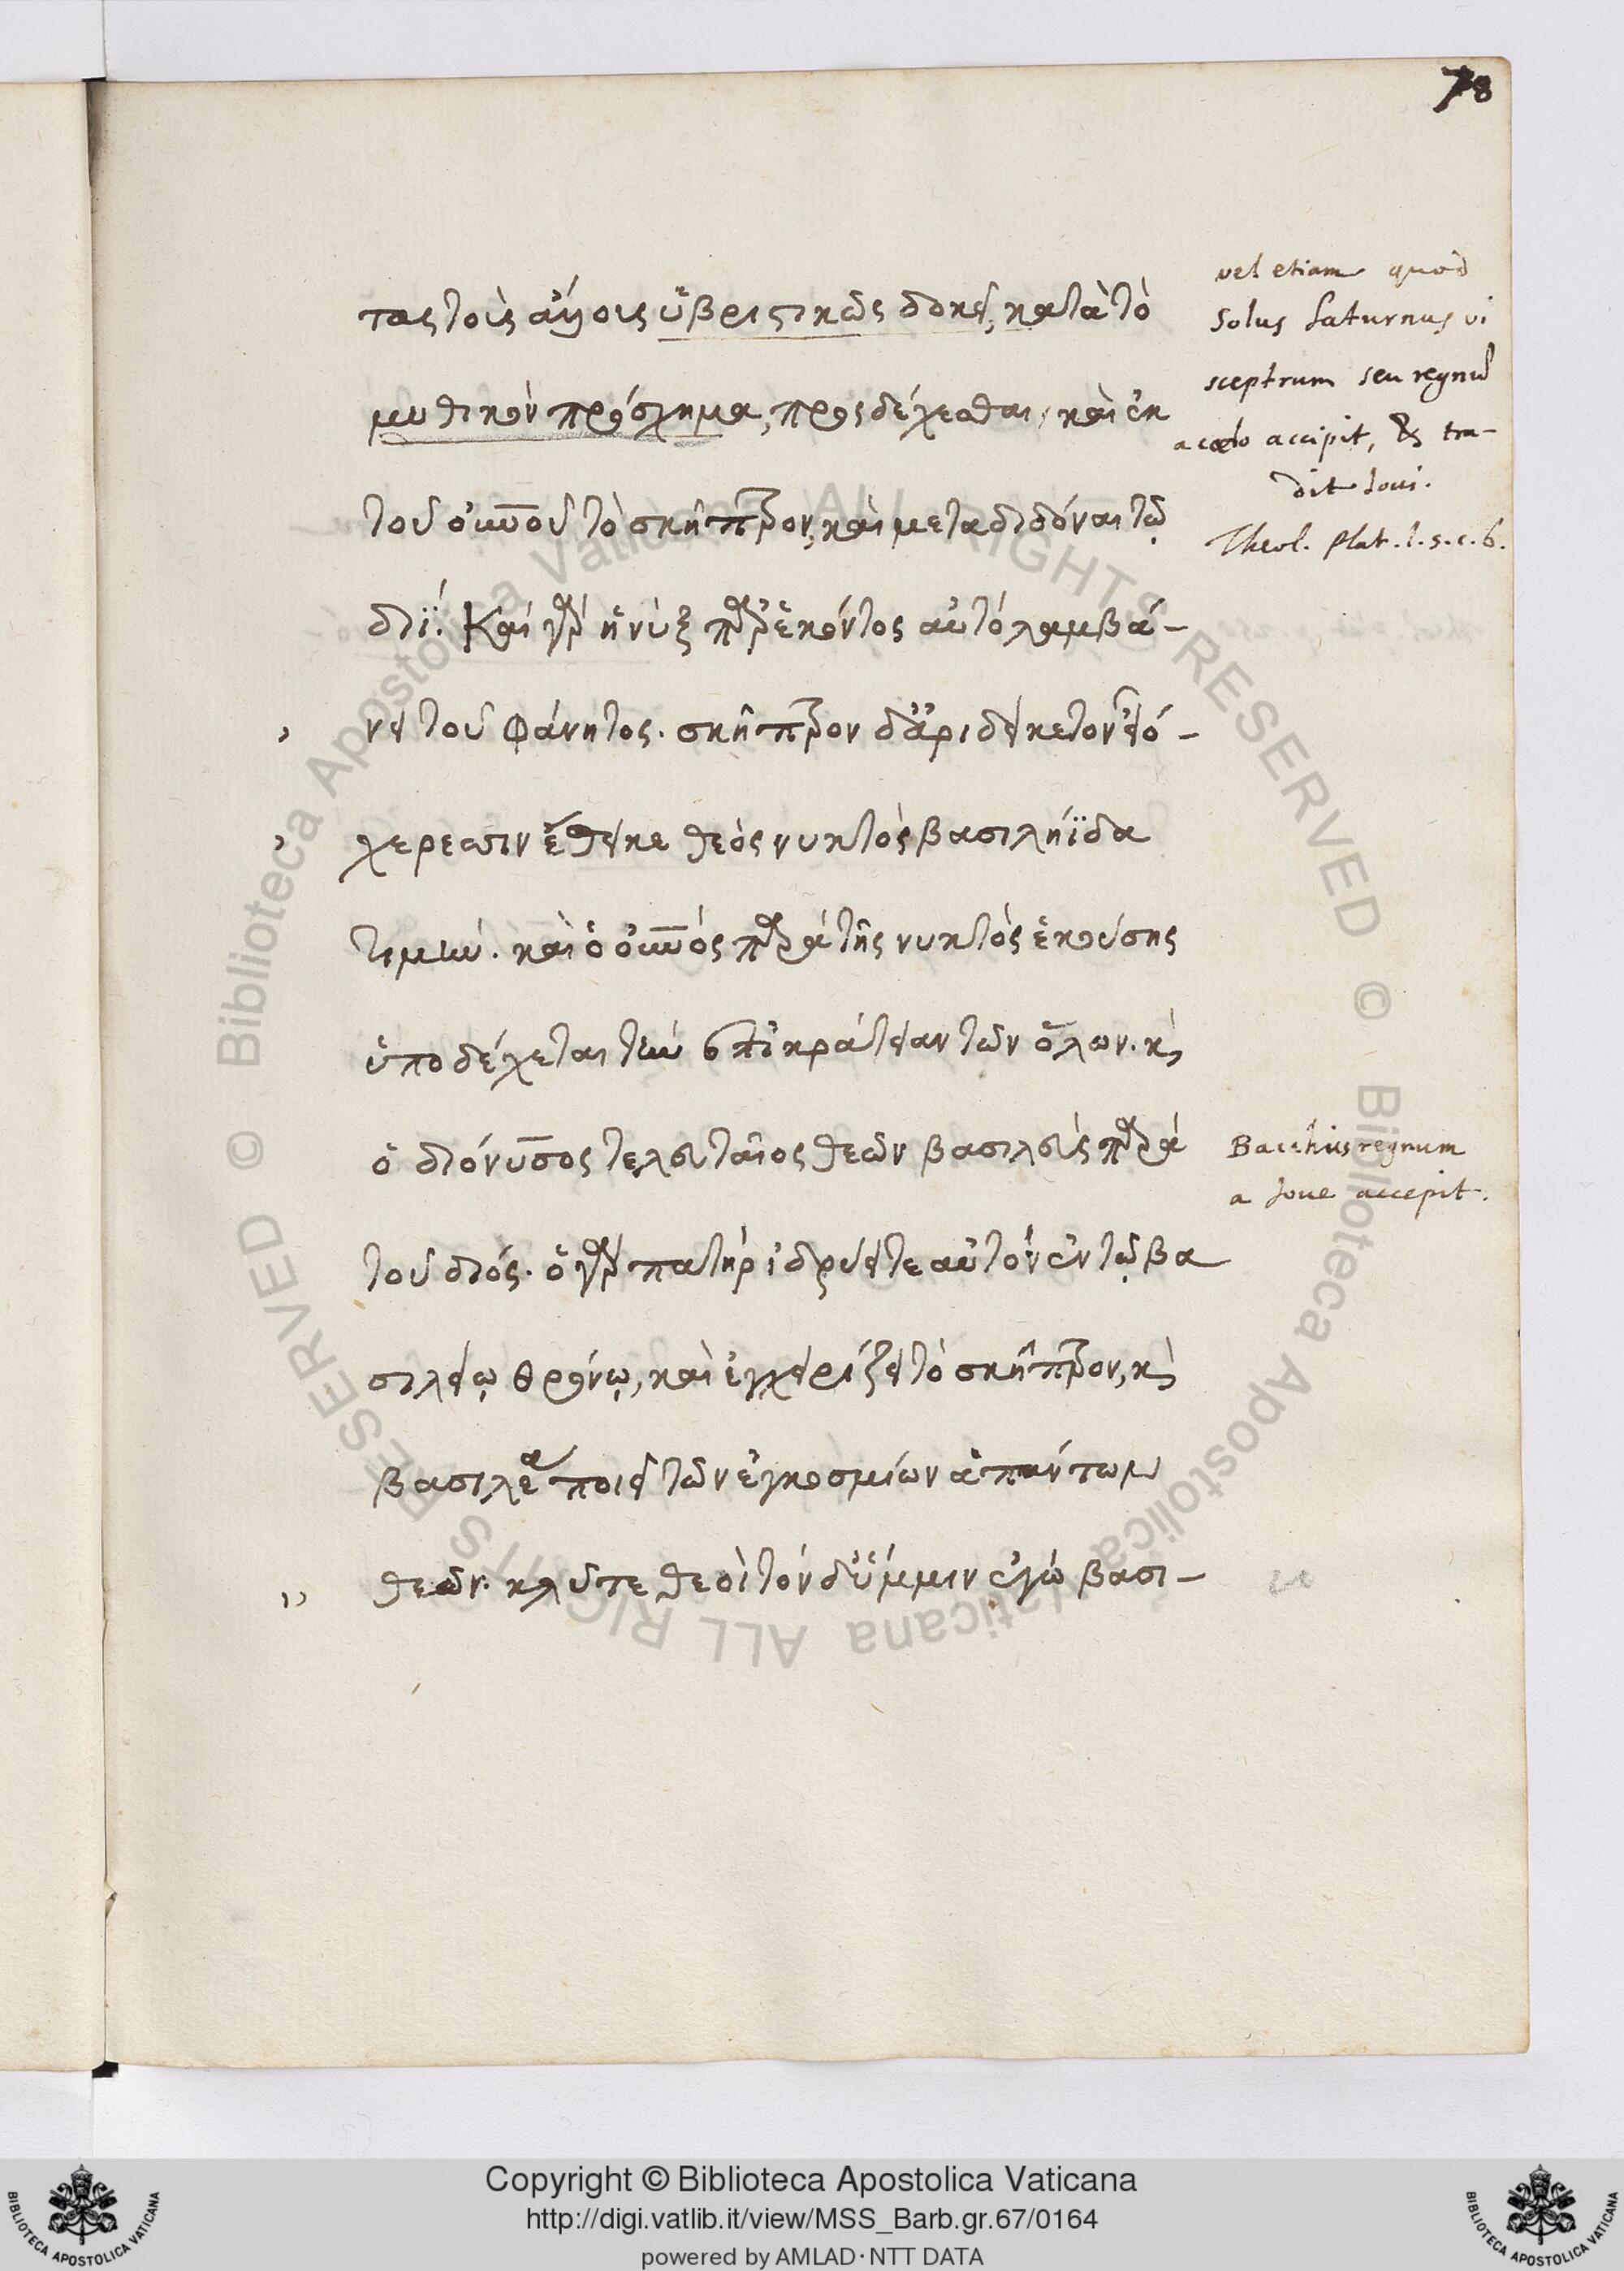 78
τας τοῖς ἄλλοις ὑβριστικῶς δοκεῖ, κατὰ τὸ
μυθικὸν πρόσχημα, προςδέχεσθαι, καὶ ἐκ
τοῦ οὐνοῦ τὸ σκῆπτρον, καὶ μεταδιδόναι τῷ
διΐ. Καὶ γὰρ ἡ νὺξ παρ' ἑκόντος αὐτὸ λαμβά-
, νει τοῦ Φάνητος. σκῆπτρον δ' ἀριδείκετον εἰό-
, χερεσσιν ἔθηκε θεὸς νυκτὸς βασιληΐδα
τιμήν. καὶ ὁ οὐνὸς παρὰ τῆς νυκτὸς ἑκούσης
ὑποδέχεται τὴν ἐπικράτειαν τῶν ὅλων. κὶ
ὁ διόνυσος τελευταῖος θεῶν βασιλεὺς παρὰ
τοῦ διός. ὁ γὰρ πατὴρ ἱδρύει τε αὐτὸν ἐν τῷ βα
σιλείῳ θρόνῳ, καὶ ἐγχειρίζει τὸ σκῆπτρον, κὶ
βασιλέα ποιεῖ τῶν ἐγκοσμίων ἁπάντων
,, θεῶν. κλῦτε θεοὶ τόν δ' ὔμμιν ἐγὼ βασι-
vel etiam quod
Solus Saturnus vi
sceptrum seu regnũ
a cœlo accipit, & tra-
dit Ioui.
Theol. Plat. l. 5. c. 6.
Bacchus regnum
a Ioue accepit.
© Biblioteca Apostolica Vaticana ALL RIGHTS RESERVED © Biblioteca Apostolica Vaticana ALL RIGHTS RESERVED
Copyright © Biblioteca Apostolica Vaticana
http://digi.vatlib.it/view/MSS_Barb.gr.67/0164
powered by AMLAD·NTT DATA
BIBLIOTECA APOSTOLICA VATICANA
BIBLIOTECA APOSTOLICA VATICANA